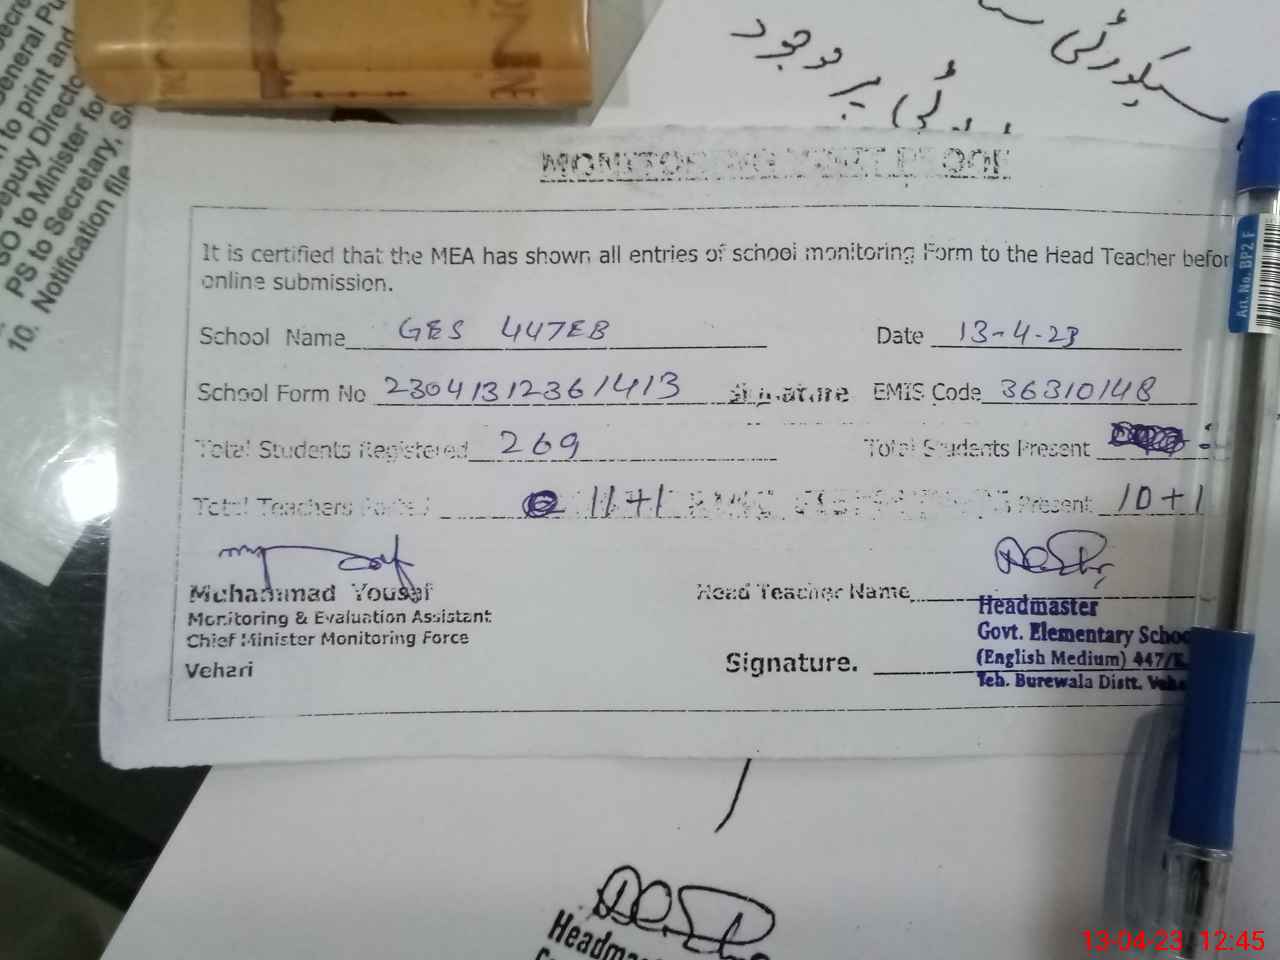 سیکورٹی
پر موجود
General Pu
to print and
Deputy Directo
SO to Minister for
PS to Secretary, S
10. Notification file
MONITORING VISIT PROOF
It is certified that the MEA has shown all entries of school monitoring Form to the Head Teacher befor
online submission.
School Name GES 447EB Date 13-4-23
School Form No 23041312361413 Signature EMIS Code 36310148
Total Students Registered 269 Total Students Present
Total Teachers 11+1 Present 10+1
Muhammad Yousaf Head Teacher Name
Monitoring & Evaluation Assistant Headmaster
Chief Minister Monitoring Force Govt. Elementary Schoo
(English Medium) 447/E
Vehari Signature. Teh. Burewala Distt. Veha
Art. No. BP2 F
Headma
13-04-23 12:45